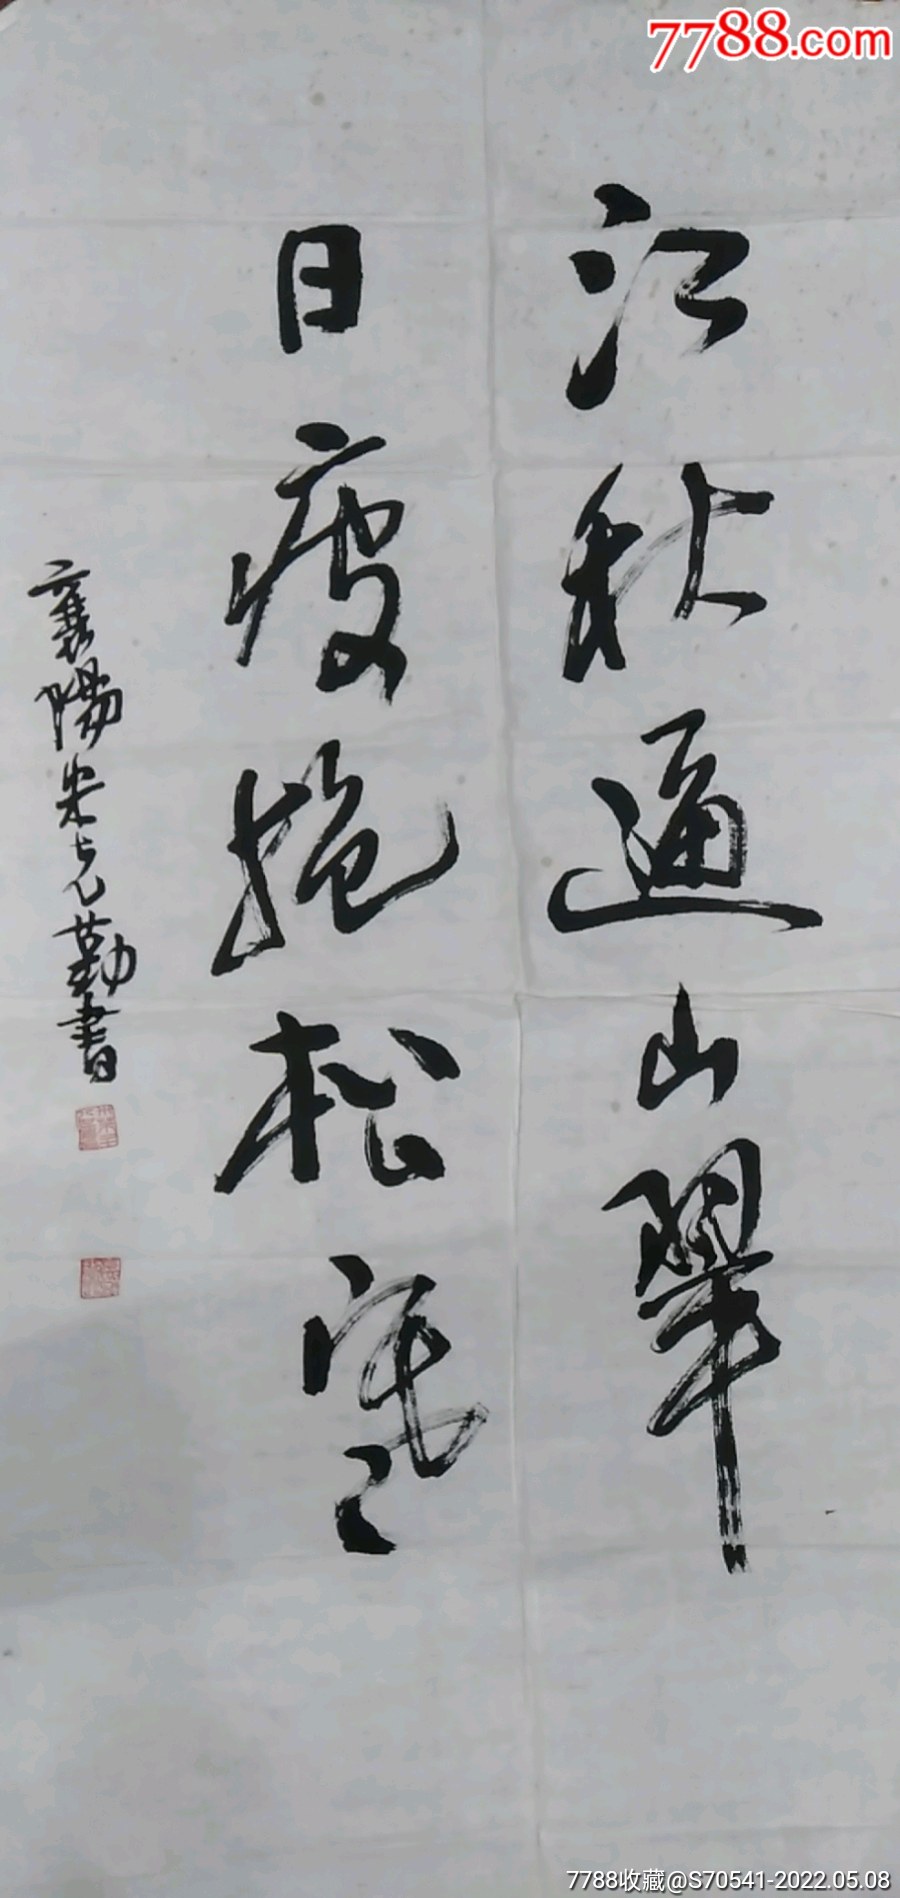 7788.com
江秋逼山翠
日瘦抱松寒
襄陽朱克勤書
7788收藏@S70541-2022.05.08